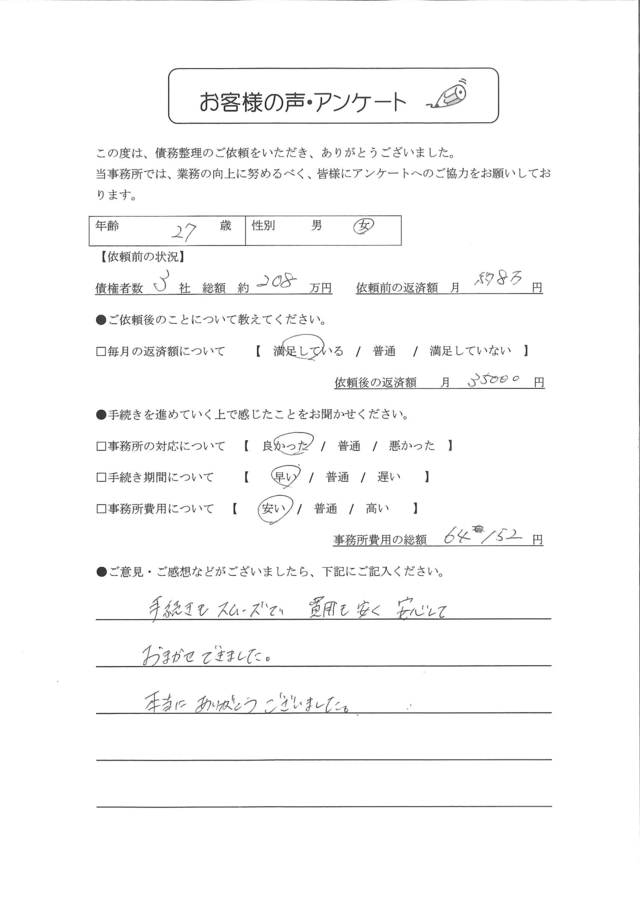 お客様の声・アンケート
この度は、債務整理のご依頼をいただき、ありがとうございました。
当事務所では、業務の向上に努めるべく、皆様にアンケートへのご協力をお願いしてお
ります。
年齢 27 歳 性別 男 女
【依頼前の状況】
債権者数 3 社 総額 約 208 万円 依頼前の返済額 月 約8万 円
●ご依頼後のことについて教えてください。
□毎月の返済額について 【 満足している / 普通 / 満足していない 】
依頼後の返済額 月 35000 円
●手続きを進めていく上で感じたことをお聞かせください。
□事務所の対応について 【 良かった / 普通 / 悪かった 】
□手続き期間について 【 早い / 普通 / 遅い 】
□事務所費用について 【 安い / 普通 / 高い 】
事務所費用の総額 64 152 円
●ご意見・ご感想などがございましたら、下記にご記入ください。
手続きもスムーズで 費用も安く 安心して
おまかせできました。
本当にありがとうございました。